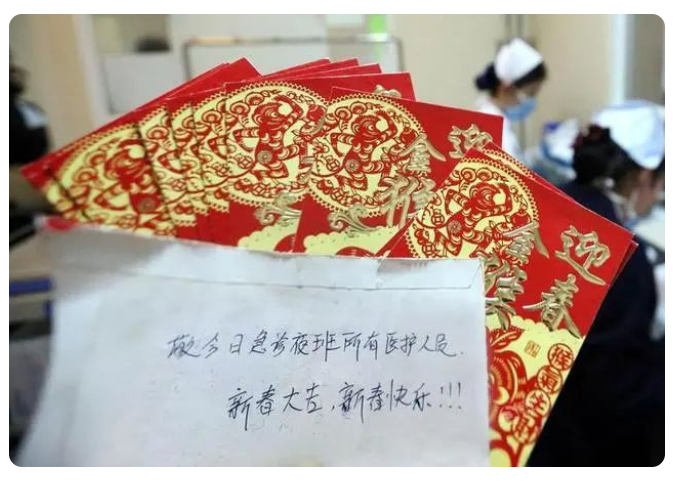 迎
金猴
迎春
金猴
致今日急诊夜班所有医护人员.
新春大吉,新春快乐!!!